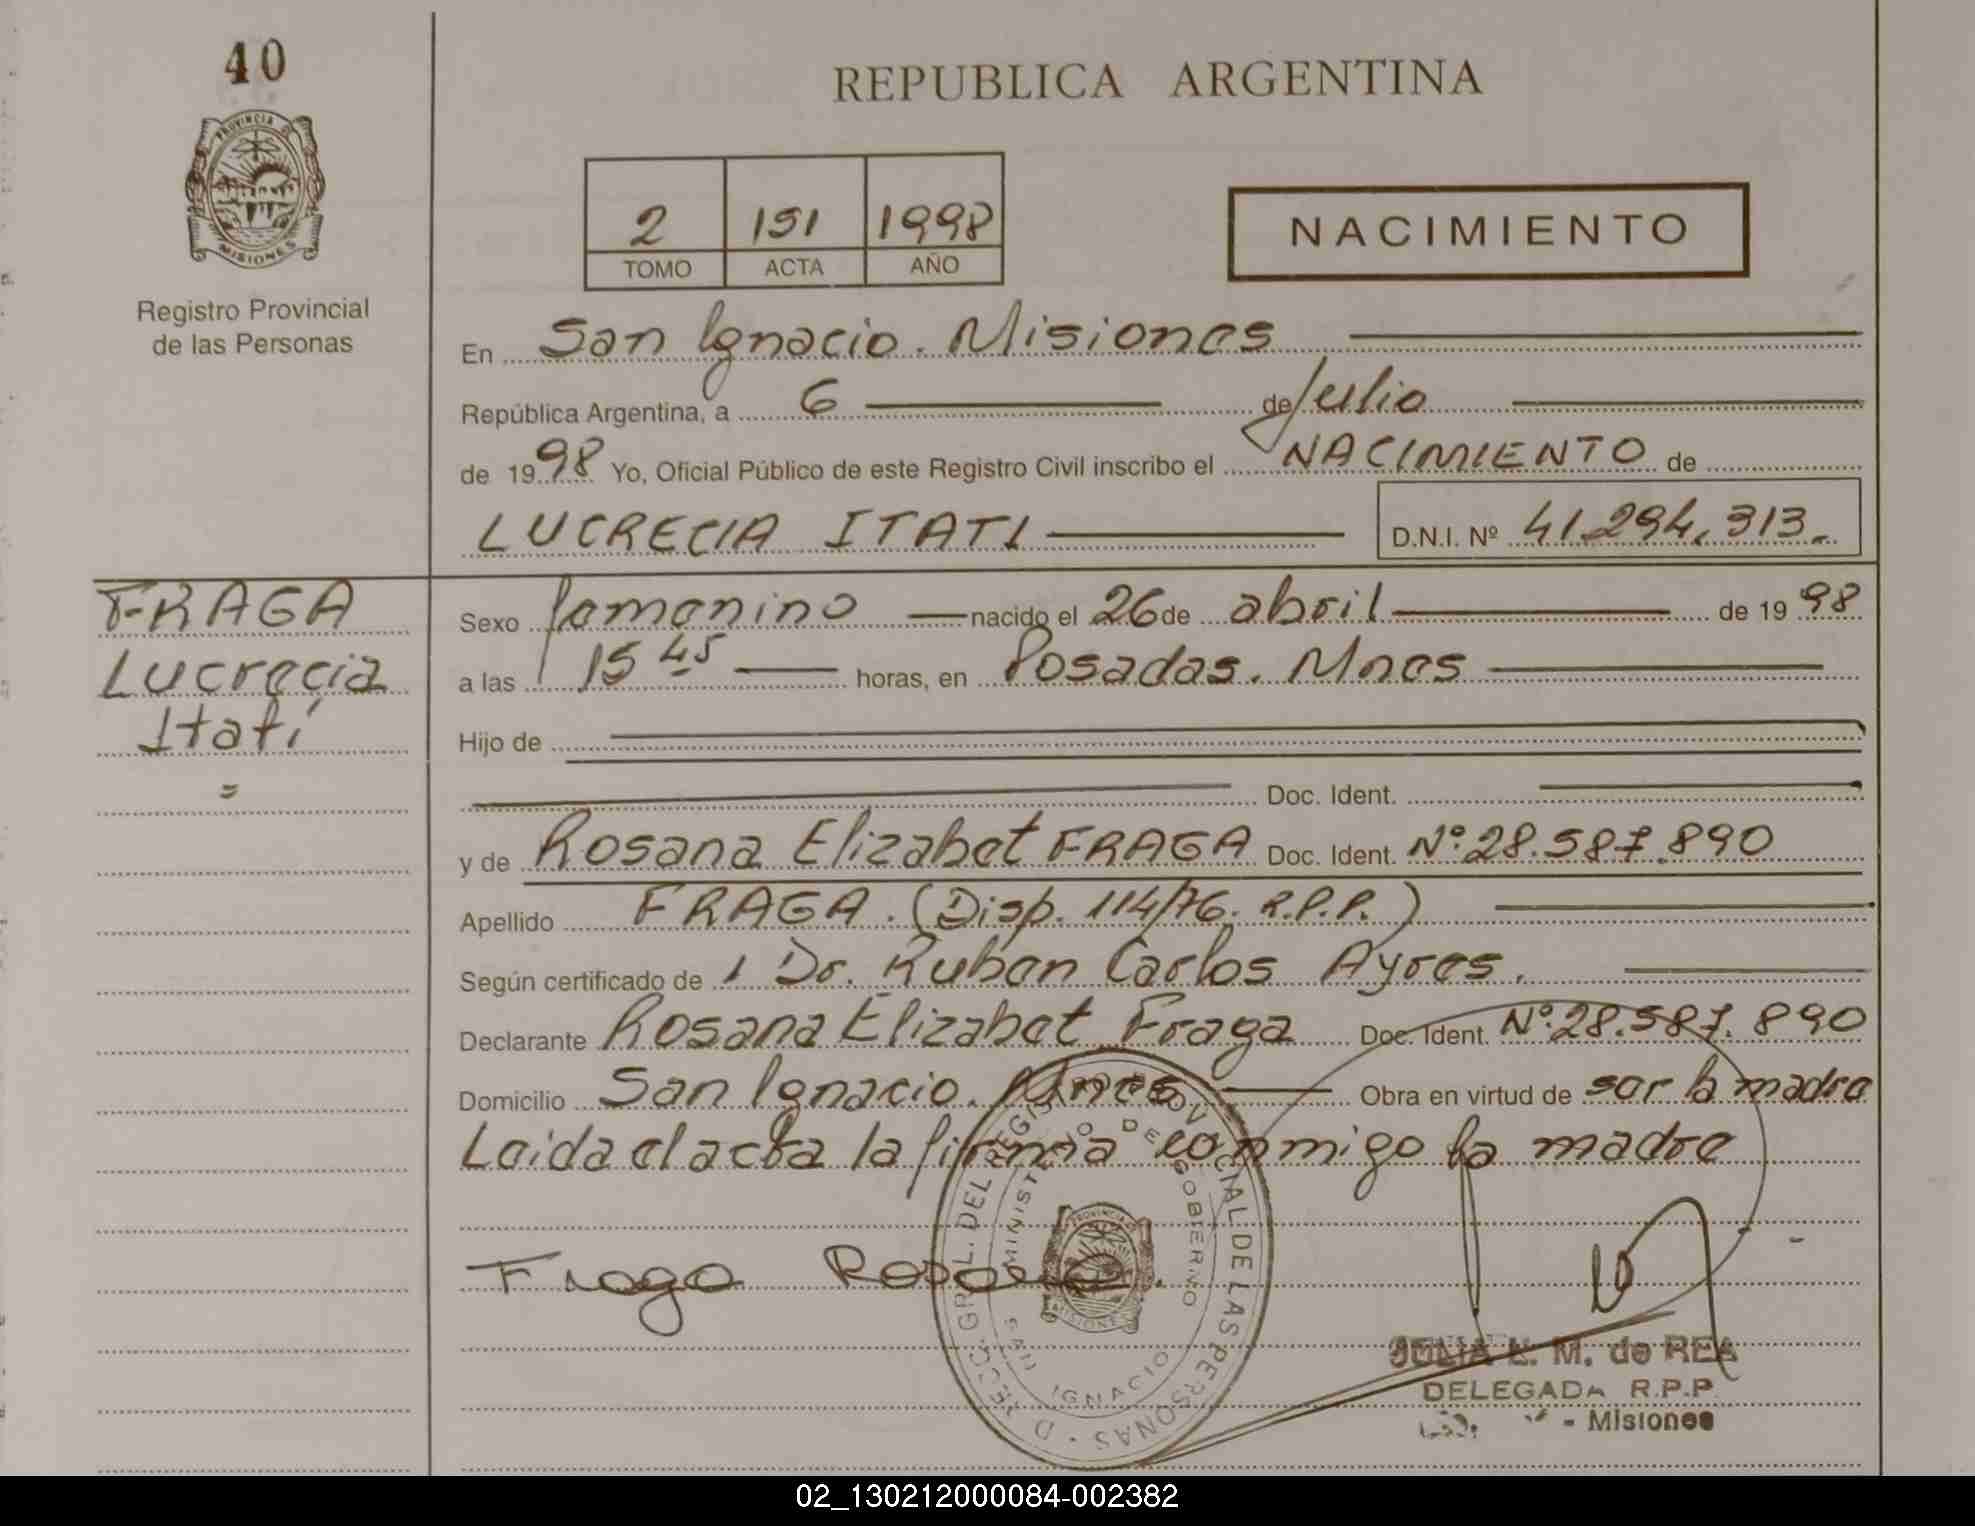 40
REPUBLICA ARGENTINA
PROVINCIA D
MISIONES
Registro Provincial
de las Personas
2 151 1998
TOMO ACTA AÑO
NACIMIENTO
En San Ignacio. Misiones
República Argentina, a 6 de Julio
de 1998 Yo, Oficial Público de este Registro Civil inscribo el NACIMIENTO de
LUCRECIA ITATI D.N.I. Nº 41.294.313.
FRAGA
Lucrecia
Itatí
=
Sexo femenino nacido el 26 de abril de 1998
a las 15 45 horas, en Posadas. Mnes
Hijo de
Doc. Ident.
y de Rosana Elizabet FRAGA Doc. Ident. Nº 28.587.890
Apellido FRAGA. (Disp. 114/76. R.P.P.)
Según certificado de 1 Dr. Ruben Carlos Ayres.
Declarante Rosana Elizabet Fraga Doc. Ident. Nº 28.587.890
Domicilio San Ignacio. Mnes Obra en virtud de ser la madre
Leida el acta la firma conmigo la madre
Fraga Rosana
D REC. GRL. DEL REGISTRO PROVINCIAL DE LAS PERSONAS
MINISTERIO DE GOBIERNO
SAN IGNACIO
PROVINCIA D
MISIONES
JULIA L. M. de REA
DELEGADA R.P.P.
- Misiones
02_130212000084-002382